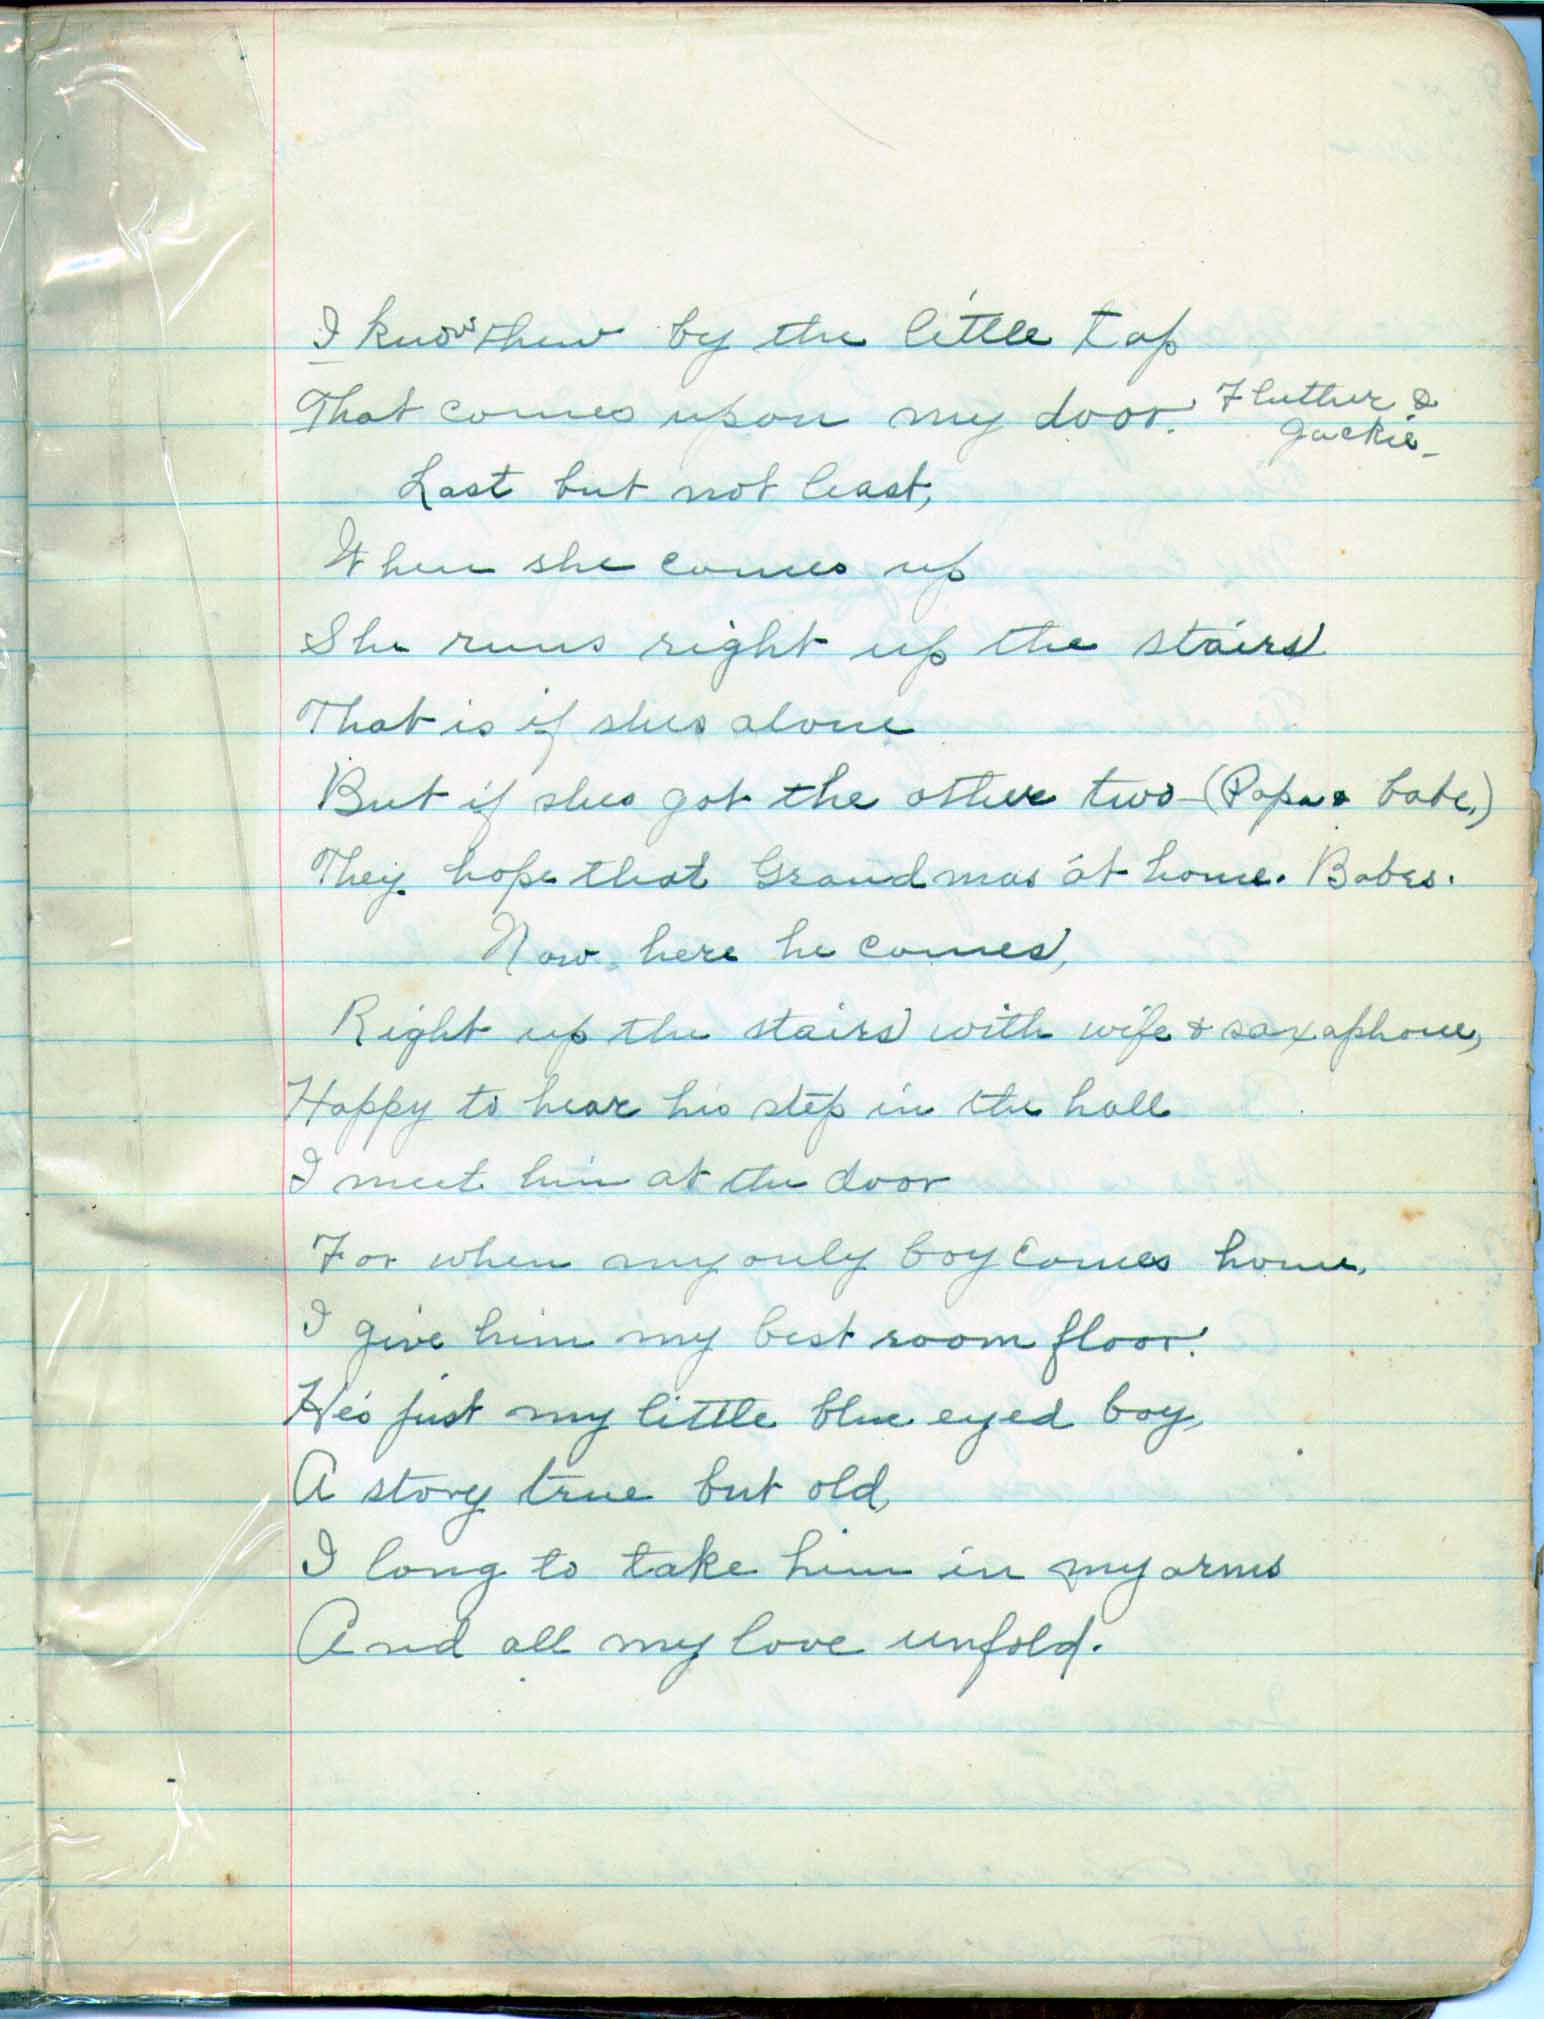 I know them by the little tap
That comes upon my door. Fluther &
Jackie.
Last but not least,
When she comes up
She runs right up the stairs
That is if shes alone
But if shes got the other two (Papa & babe.)
They hope that Grandmas at home. Babes.
Now here he comes,
Right up the stairs with wife & saxaphone,
Happy to hear his step in the hall
I meet him at the door
For when my only boy comes home.
I give him my best room floor.
He's just my little blue eyed boy,
A story true but old,
I long to take him in my arms
And all my love unfold.